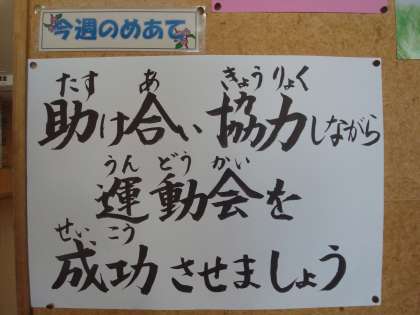 今週のめあて
たす あ きょうりょく
助け合い協力しながら
うん どう かい
運動会を
せい こう
成功させましょう